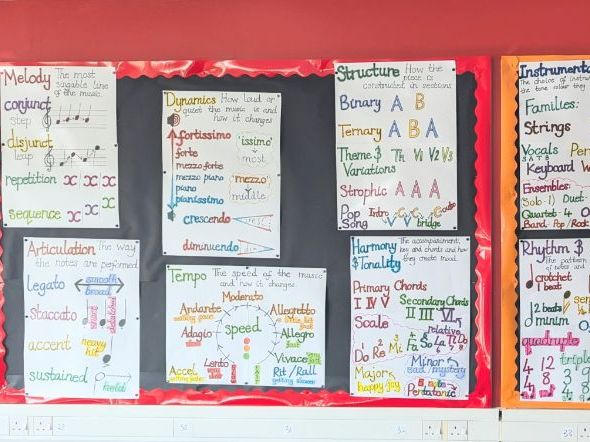 Melody The most
singable line
of the music.
conjunct
step
disjunct
leap
repetition x x x
sequence x x x
Articulation The way
the notes are performed
legato smooth
broad
Staccato short
detached
accent heavy
hit
sustained held
Dynamics How loud or
quiet the music is and
how it changes
fortissimo 'issimo'
forte most
mezzo forte
mezzo piano 'mezzo'
piano middle
pianissimo
crescendo
diminuendo
Tempo The speed of the music
and how it changes.
Moderato
Andante Allegretto
walking pace a little bit
fast
Adagio speed Allegro
slow fast
Lento Vivace
Accel Rit / Rall
getting faster getting slower
Structure How the
piece is
constructed in sections
Binary A B
Ternary A B A
Theme & Th V1 V2 V3
Variations
Strophic A A A
Pop Intro V C V C
Song bridge
Harmony The accompaniment,
& Tonality key and chords and how
they create mood.
Primary Chords
I IV V Secondary Chords
II III VI
Scale relative
Do Re Mi Fa So La Ti Do
Major Minor
happy/joy sad/mystery
Pentatonic
Instrumenta
The choice of instru
the tone colour they
Families:
Strings
Vocals Per
SATB
Keyboard W
Ensembles:
Solo 1) Duet
Quartet 4 O
Band Pop/Rock
Rhythm &
The pattern
of notes and
crotchet
1 beat
2 beats
minim
quadruple
triple
4 12
4 8
3 9
4 8